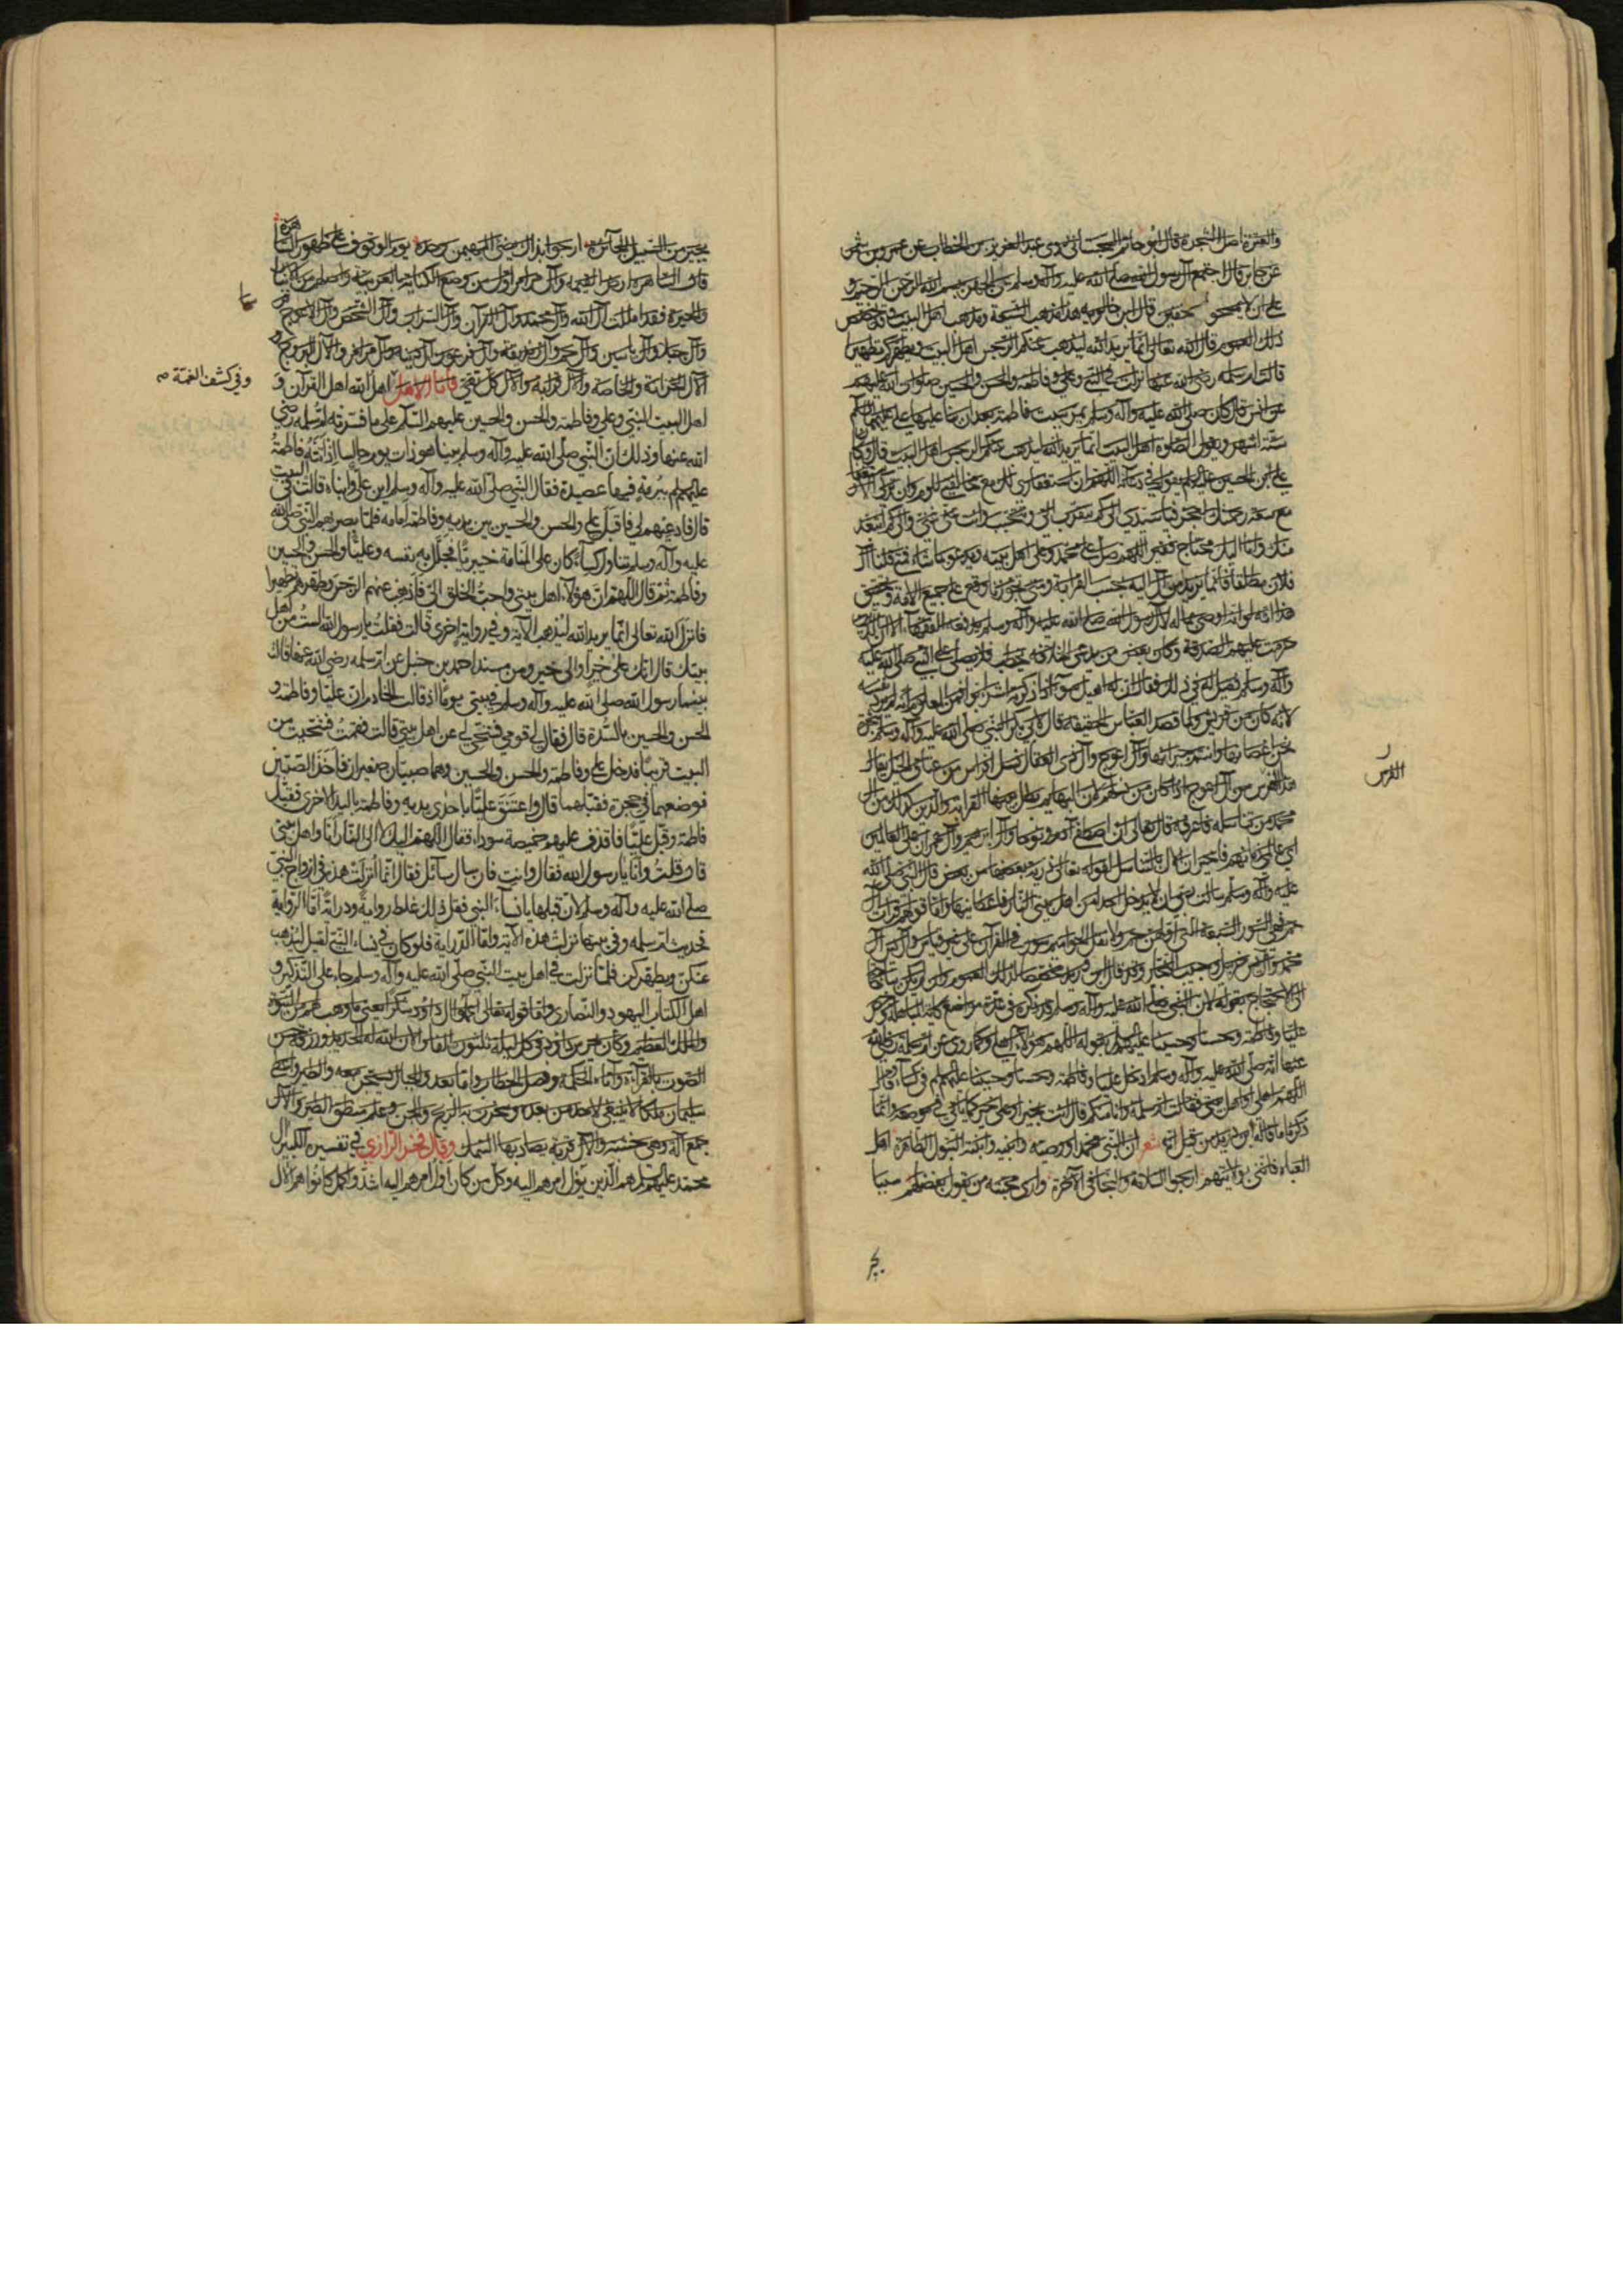 والعترة اصل الشجرة قال ابو حاتم السجستاني روى عبد العزيز بن الخطاب عن عمرو بن شمر
عن جابر قال اجتمع آل رسول الله صلى الله عليه وآله وسلم على الجهر ببسم الله الرحمن الرحيم و
على ان لا يمسحوا الخفين قال ابن خالويه هذا مذهب الشيعة ومذهب اهل البيت وقد تخصص
ذلك العموم قال الله تعالى انما يريد الله ليذهب عنكم الرجس اهل البيت ويطهركم تطهيرا
قالت ام سلمه رضى الله عنها نزلت في النبي وعلي وفاطمة والحسن والحسين صلوات الله عليهم
عن انس قال كان صلى الله عليه وآله وسلم يمر ببيت فاطمة بعد ان بنا عليها علي عليهما السلم
ستة اشهر ويقول الصلوة اهل البيت انما يريد الله ليذهب عنكم الرجس اهل البيت قال وكان
علي بن الحسين عليهما السلم يقول في دعائه اللهم ان استغفاري لك مع مخالفتي للؤم وان تركي الاستغفار
مع سعة رحمتك لعجز فيا سيدي الى كم تتقرب الي وتتحبب وانت عني غني والى كم اتبعد
منك وانا اليك محتاج فقير اللهم صل على محمد وعلى اهل بيته ويدعو بما شاء فمتى قلنا آل
فلان مطلقا فانما نريد من آل اليه بحسب القرابة ومتى تجوزنا وقع على جميع الامة وتحقيق
هذا انه لو اوصى بماله لآل رسول الله صلى الله عليه وآله وسلم لم يدفعه الفقهاء الا الى الذين
حرمت عليهم الصدقة وكان بعض من يدعي الخلافة يخطب فلا يصلي على النبي صلى الله عليه
وآله وسلم فقيل له في ذلك فقال ان له اهيل سوء اذا ذكرته اشرأبوا فمن المعلوم انه لم يرد نفسه
لانه كان من قريش ولما قصد العباس الحقيقة قال لابي بكر النبي صلى الله عليه وآله وسلم شجرة
نحن اغصانها وانتم جيرانها وآل اعوج وآل ذي العقال نسل افراس من عتاق الخيل يقال
هذا الفرس من آل اعوج اذا كان من نسلهم لان البهايم بطل بينها القرابة والدين كذلك آل
محمد من تناسله فاعرفه قال تعالى ان الله اصطفى آدم ونوحا وآل ابراهيم وآل عمران على العالمين
اي عالمي زمانهم فاخبر ان الآل بالتناسل لقوله تعالى ذرية بعضها من بعض قال النبي صلى الله
عليه وآله وسلم سالت ربي ان لا يدخل احدا من اهل بيتي النار فاعطانيها واما قولهم قرات آل
حم فهي السور السبعة التي اولهن حم ولا تقل الحواميم وسورة في القرآن على غير قياس وآل يس آل
محمد وآل يس حزبيل وحبيب النجار وقد قال ابن دريد مخصصا لذلك العموم وان لم يكن بنا حاجة
الى الاحتجاج بقوله لان النبي صلى الله عليه وآله وسلم قد ذكره في عدة مواضع كآية المباهلة وخص
عليا وفاطمة وحسنا وحسينا عليهم السلم بقوله اللهم هؤلاء اهلي وكما روى عن ام سلمة رضي الله
عنها انه صلى الله عليه وآله وسلم ادخل عليا وفاطمة وحسنا وحسينا عليهم السلم في كساء وقال
اللهم اهلي او اهل بيتي فقالت ام سلمة وانا منكم قال انت بخير او على خير كما ياتي في موضعه وانما
ذكرنا ما قاله ابن دريد من قبل انه شعر ان النبي محمدا ووصيه وابنيه وابنته البتول الطاهرة اهل
العباء فانني بولائهم ارجو السلامة والنجا في الآخرة وارى محبة من يقول بفضلهم سببا
يجير
الفرس
يجير من السبيل الجائره ارجو بذاك رضى المهيمن وحده يوم الوقوف على ظهور الساهره
قال الساهرة ارض القيمة وآل مرامر اول من وضع الكتابة بالعربية واصلهم من الانبار
والحيرة فقد املت آل الله وآل محمد وآل القرآن وآل السراب وآل الشخص وآل الاعوج
وآل جبلا وآل ياسين وآل حم وآل زنديقة وآل فرعون آل دينه وآل مرامر والآل البروج و
الآل الحزانة والخاصة وآل قرابة والآل كل تقي فاما الاهل اهل الله اهل القرآن و
اهل البيت النبي وعلي وفاطمة والحسن والحسين عليهم السلم على ما فسرته ام سلمه رضي
الله عنها وذلك ان النبي صلى الله عليه وآله وسلم بينا هو ذات يوم جالسا اذ اتته فاطمة
عليها السلم ببرمة فيها عصيدة فقال النبي صلى الله عليه وآله وسلم اين علي وابناه قالت في البيت
قال فادعيهم لي فاقبل علي والحسن والحسين بين يديه وفاطمة امامه فلما بصر بهم النبي صلى الله
عليه وآله وسلم تناول كساء كان على المنامة خيبريا فجلل به نفسه وعليا والحسن والحسين
وفاطمة ثم قال اللهم ان هؤلاء اهل بيتي واحب الخلق الي فاذهب عنهم الرجس وطهرهم تطهيرا
فانزل الله تعالى انما يريد الله ليذهب الآية وفي رواية اخرى قالت فقلت يا رسول الله الست من اهل
بيتك قال انك على خير او الى خير ومن مسند احمد بن حنبل عن ام سلمه رضى الله عنها قالت
بينما رسول الله صلى الله عليه وآله وسلم في بيتي يوما اذ قالت الخادم ان عليا وفاطمة و
الحسن والحسين بالسدة قال فقال لي قومي فتنحي لي عن اهل بيتي قالت فقمت فتنحيت من
البيت قريبا فدخل علي وفاطمة والحسن والحسين وهما صبيان صغيران فاخذ الصبيين
فوضعهما في حجره فقبلهما قال واعتنق عليا باحدى يديه وفاطمة باليد الاخرى فقبل
فاطمة وقبل عليا فاغدف عليهم خميصة سوداء فقال اللهم اليك لا الى النار انا واهل بيتي
قال وقلت وانا يا رسول الله فقال وانت فان سال سائل فقال انما انزلت هذه في ازواج النبي
صلى الله عليه وآله وسلم لان قبلها يا نساء النبي فقل ذلك غلط رواية ودراية اما الرواية
فحديث ام سلمه وفي بيتها نزلت هذه الآية واما الدراية فلو كان في نساء النبي لقيل ليذهب
عنكن ويطهركن فلما نزلت في اهل بيت النبي صلى الله عليه وآله وسلم جاء على التذكير و
اهل الكتاب اليهود والنصارى واما قوله تعالى اعملوا آل داود شكرا يعني ما وهب لهم من النبوة
والملك العظيم وكان يحرس داود في كل ليلة ثلثون الفا والان الله له الحديد ورزقه حسن
الصوت بالقرآءة وآتاه الحكمة وفصل الخطاب وما بعد والجبال يسبحن معه والطير واعطى
سليمان ملكا لا ينبغي لاحد من بعده وسخر له الريح والجن وعلم منطق الطير والآل
جمع آلة وهي خشبة والآل قرية يصاد بها السمك وقال فخر الرازي في تفسيره الكبير آل
محمد عليهم السلم هم الذين يؤل امرهم اليه وكل من كان اول امرهم اليه اشد واكمل كانوا هم الآل
وفي كشف الغمة ص